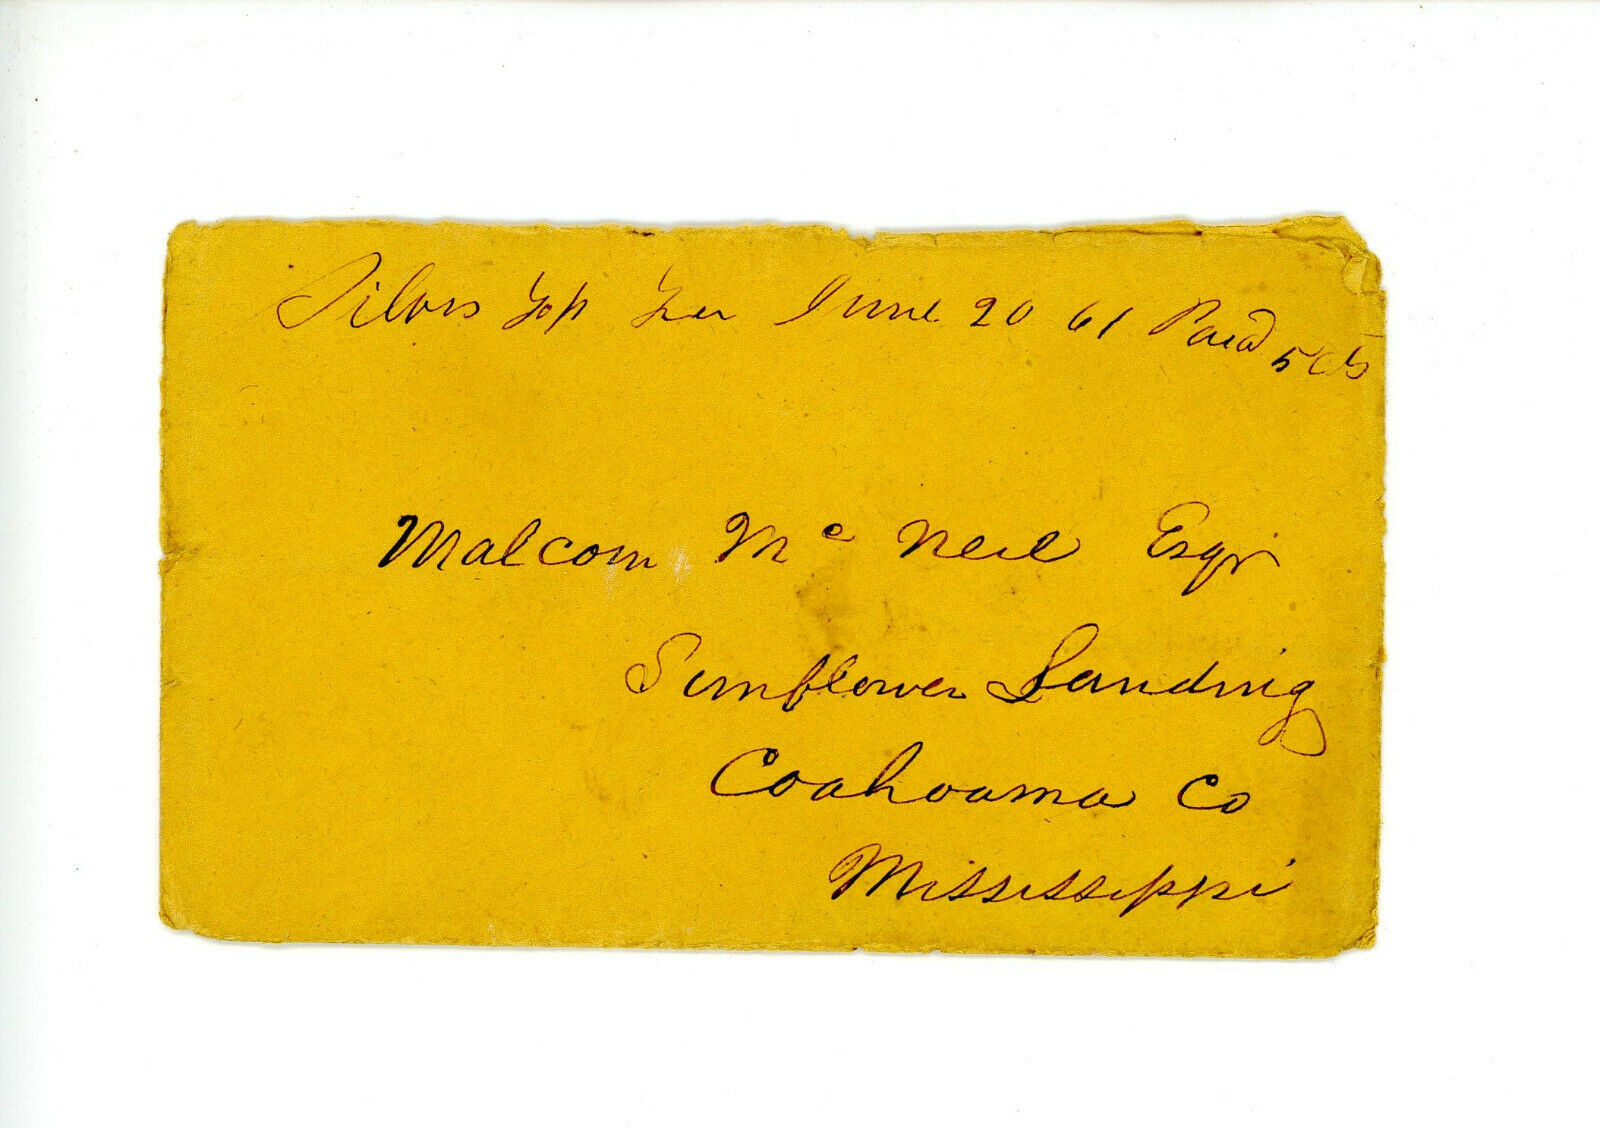 Silvers Top Ten June 20 61 Paid 5 cts
Malcom Mc Neil Esqr
Sunflower Landing
Coahoama Co
Mississippi